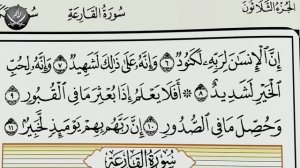 سُورَةُ القَارِعَةِ الجُزْءُ الثَّلَاثُونَ
إِنَّ ٱلْإِنسَٰنَ لِرَبِّهِۦ لَكَنُودٌ ٦ وَإِنَّهُۥ عَلَىٰ ذَٰلِكَ لَشَهِيدٌ ٧ وَإِنَّهُۥ لِحُبِّ
ٱلْخَيْرِ لَشَدِيدٌ ٨ ۞ أَفَلَا يَعْلَمُ إِذَا بُعْثِرَ مَا فِى ٱلْقُبُورِ ٩
وَحُصِّلَ مَا فِى ٱلصُّدُورِ ١٠ إِنَّ رَبَّهُم بِهِمْ يَوْمَئِذٍ لَّخَبِيرٌۢ ١١
سُورَةُ القَارِعَةِ